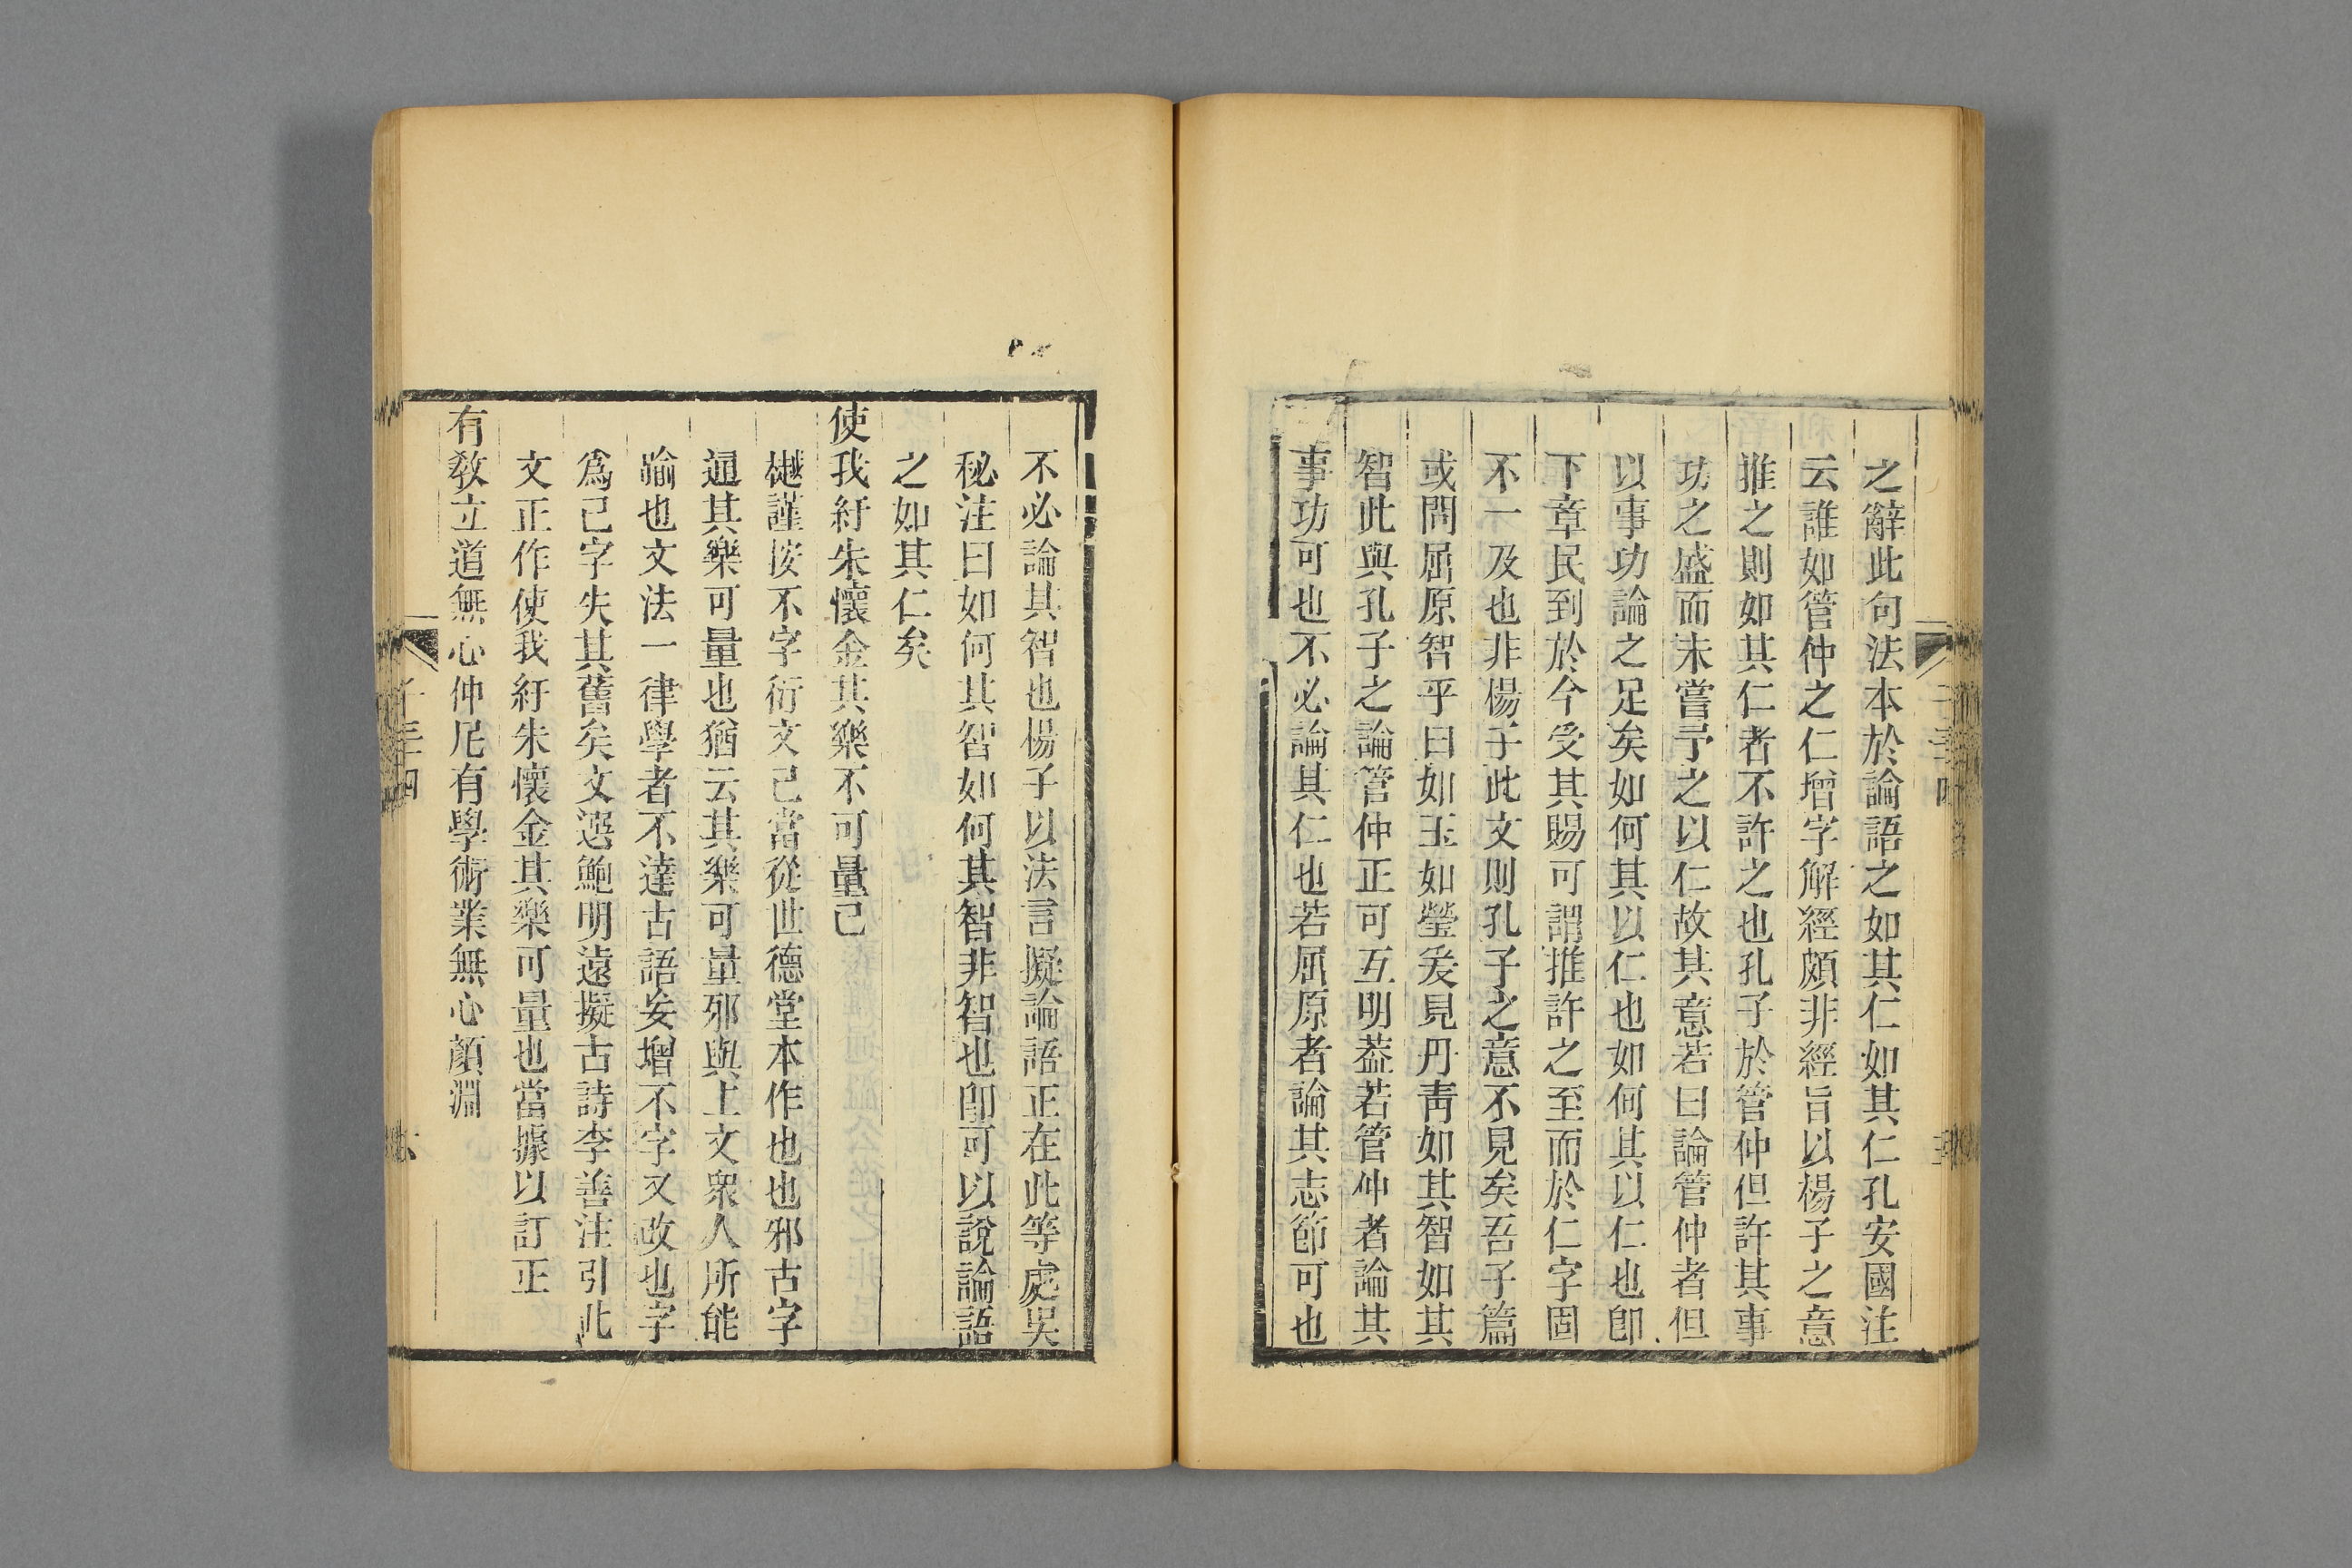 之辭此句法本於論語之如其仁如其仁孔安國注
云誰如管仲之仁增字解經頗非經旨以楊子之意
推之則如其仁者不許之也孔子於管仲但許其事
功之盛而未嘗予之以仁故其意若曰論管仲者但
以事功論之足矣如何其以仁也如何其以仁也卽
下章民到於今受其賜可謂推許之至而於仁字固
不一及也非楊子此文則孔子之意不見矣吾子篇
或問屈原智乎曰如玉如瑩爰見丹靑如其智如其
智此與孔子之論管仲正可互明葢若管仲者論其
事功可也不必論其仁也若屈原者論其志節可也
不必論其智也楊子以法言擬論語正在此等處吳
秘注曰如何其智如何其智非智也卽可以說論語
之如其仁矣
使我紆朱懷金其樂不可量已
樾謹按不字衍文已當從世德堂本作也也邪古字
通其樂可量也猶云其樂可量邪與上文衆人所能
踰也文法一律學者不達古語妄增不字又改也字
爲已字失其舊矣文選鮑明遠擬古詩李善注引此
文正作使我紆朱懷金其樂可量也當據以訂正
有敎立道無心仲尼有學術業無心顏淵
子三十四
六